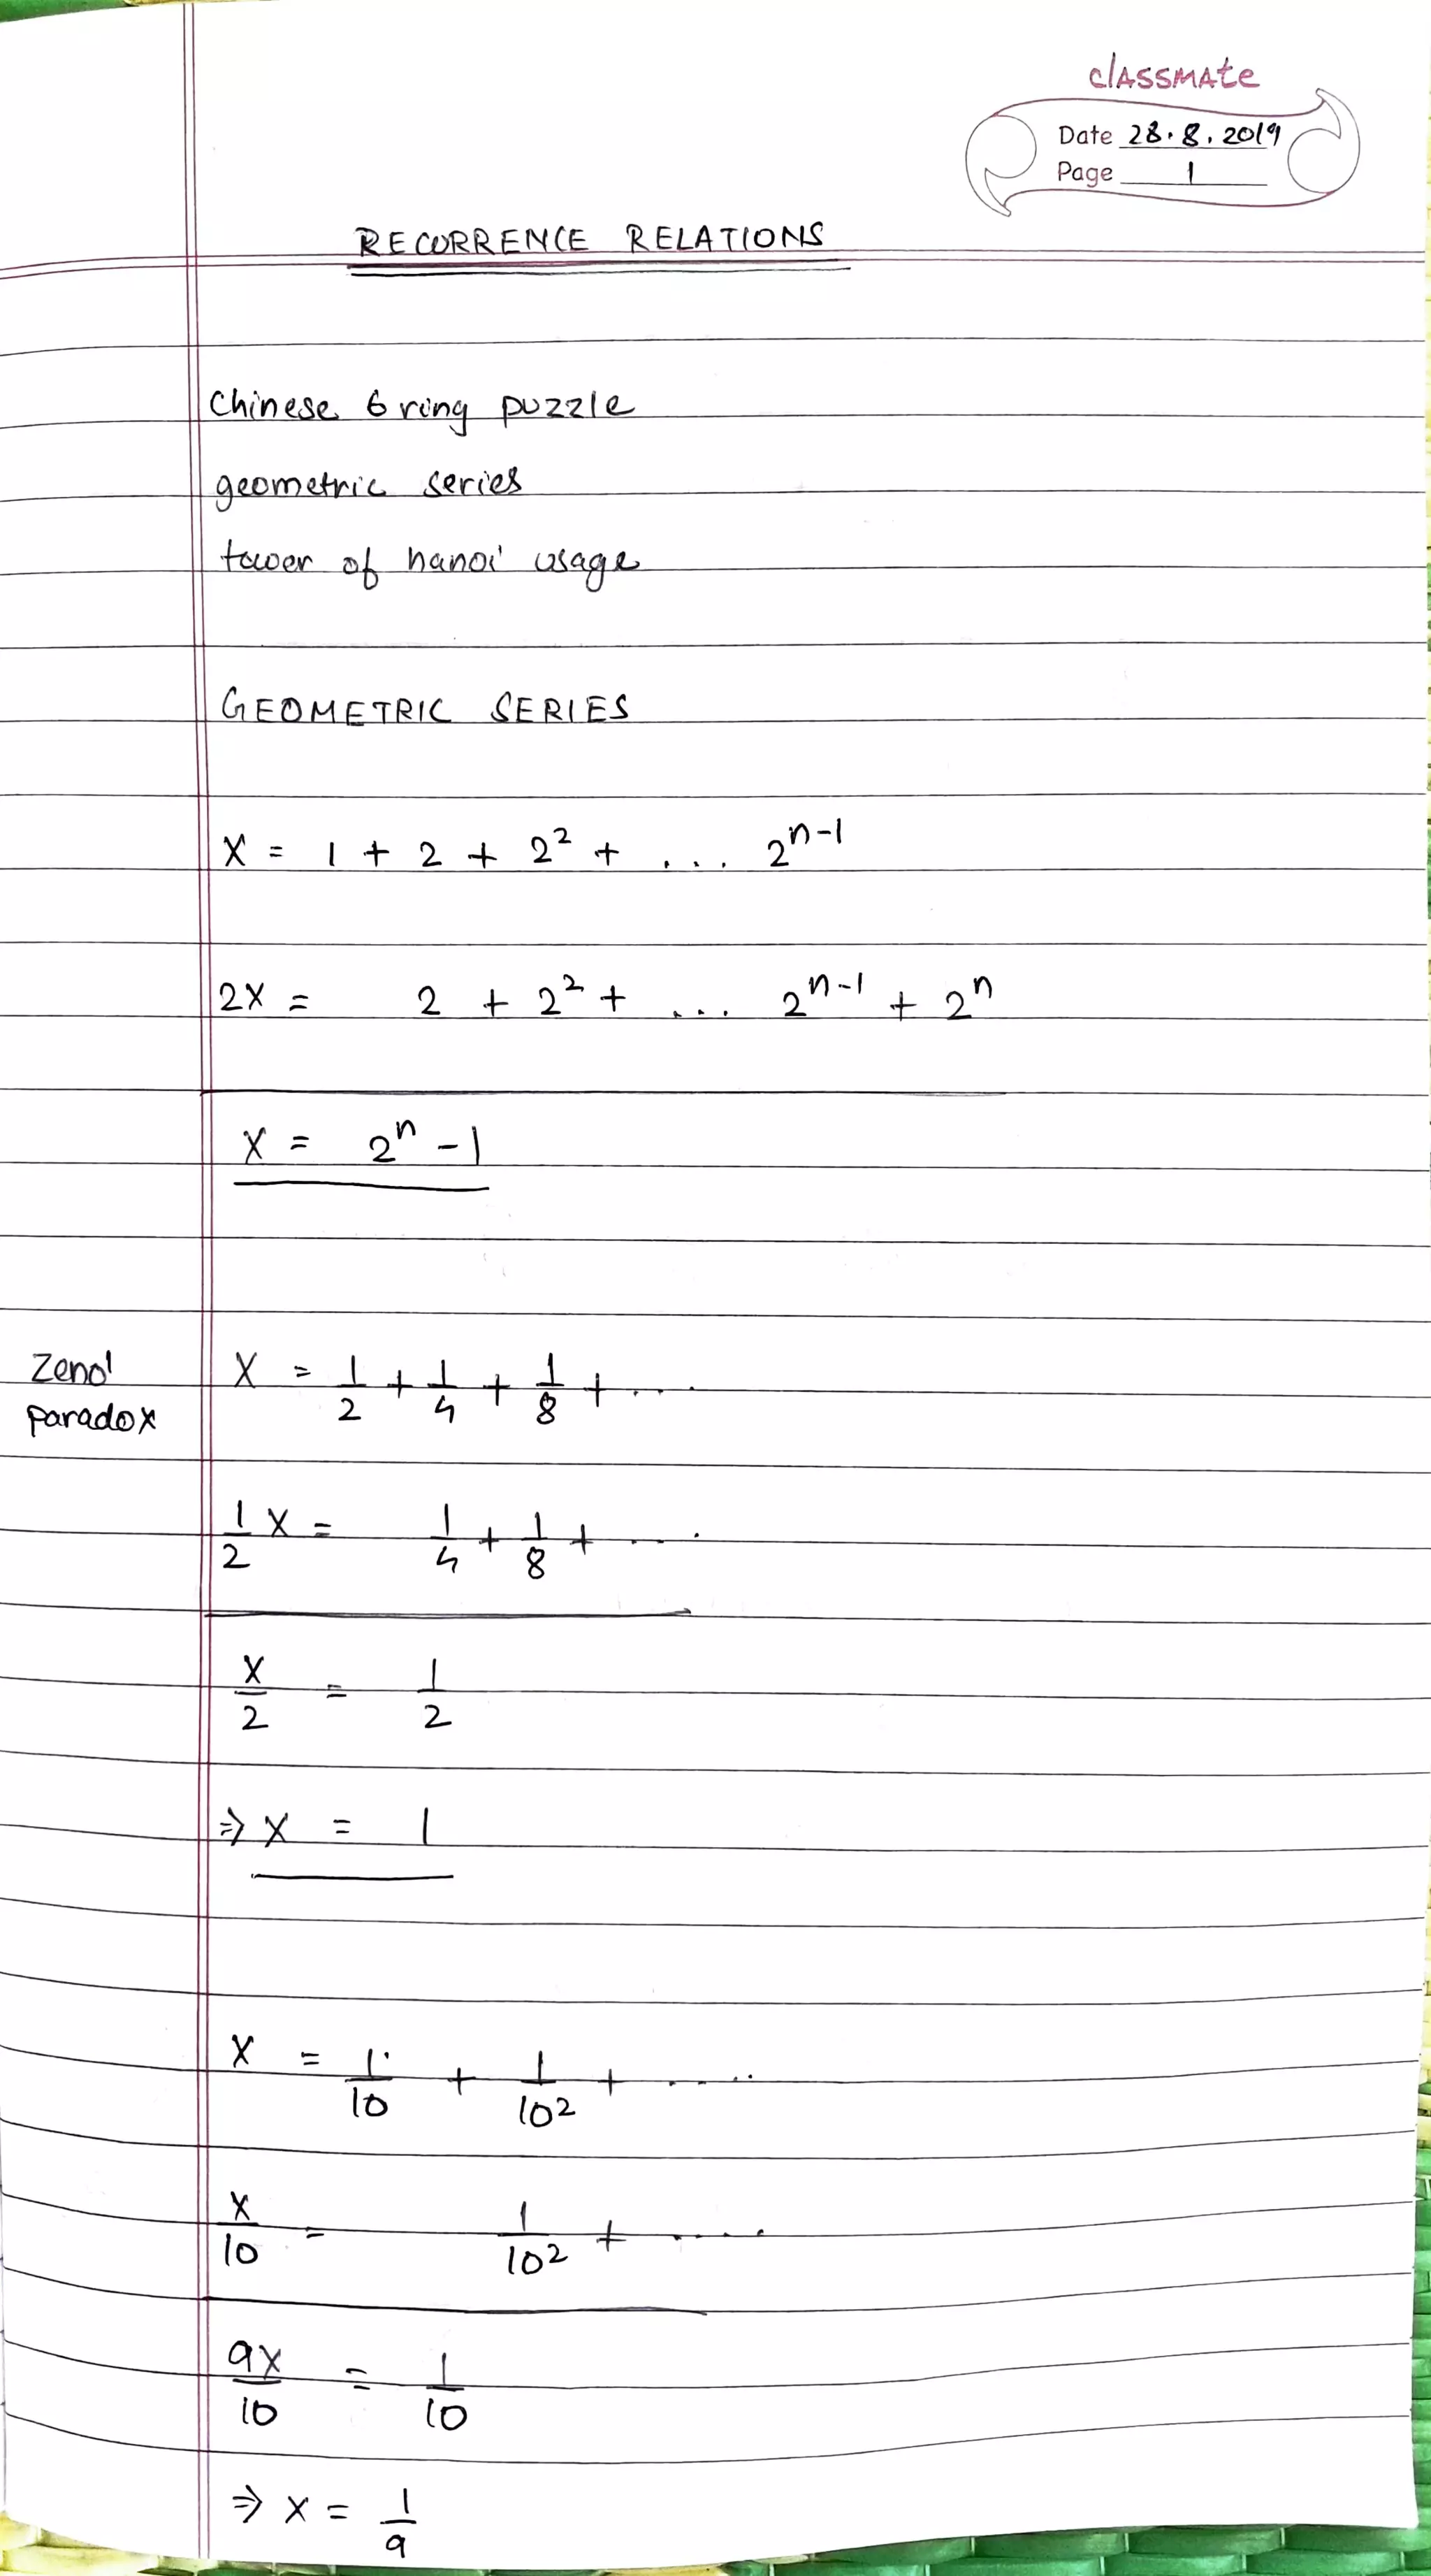 classmate
Date 28.8.2019
Page 1
RECURRENCE RELATIONS
Chinese 6 ring puzzle
geometric series
tower of hanoi usage
GEOMETRIC SERIES
X = 1 + 2 + 2² + ... 2ⁿ⁻¹
2X = 2 + 2² + ... 2ⁿ⁻¹ + 2ⁿ
X = 2ⁿ - 1
Zeno'
paradox
X = 1/2 + 1/4 + 1/8 + ....
1/2 X = 1/4 + 1/8 + ....
X/2 = 1/2
⇒ X = 1
X = 1/10 + 1/10² + .....
X/10 = 1/10² + .....
9X/10 = 1/10
⇒ X = 1/9